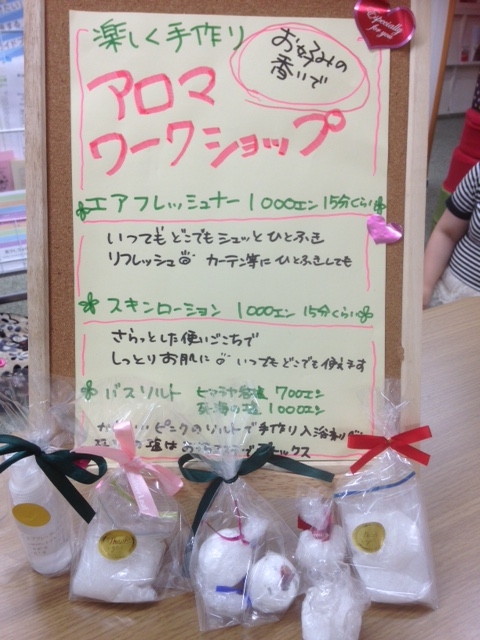 Especially for you!
楽しく手作り
お好みの
香いで
アロマ
ワークショップ
エアフレッシュナー 1000エン 15分くらい
いつでもどこでもシュッとひとふき
リフレッシュ カーテン等にひとふきしても
スキンローション 1000エン 15分くらい
さらっとした使いごこちで
しっとりお肌に いつでもどこでも使えます
バスソルト ヒマラヤ岩塩 700エン
死海の塩 1000エン
ピンクのソルトで手作り入浴剤
塩は